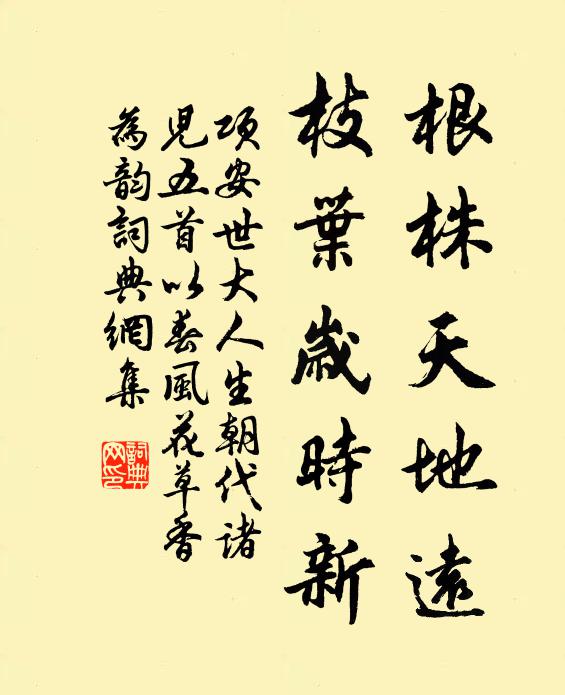 根株天地遠
枝葉歲時新
項安世大人生朝代諸
児五首以春風花草香
為韵詞典網集
詞典
网印